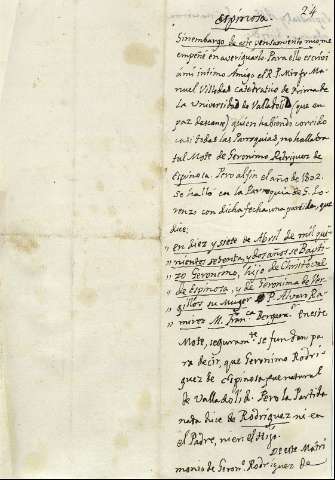 24
Espinosa
Sinembargo de este pensamiento mucho me
empeñé en averiguarlo. Para ello escrivi
á mi intimo Amigo el R. P. Mro fr. Ma
nuel Villodas catedratico de Prima de
la Universidad de Valladolid (que en
paz descanse) quien habiendo corrido
casi todas las Parroquias, no hallaba
tal Mote de Geronimo Rodriguez de
Espinosa. Pero al fin el año de 1802.
se halló en la Parroquia de S. Lo
renzo con dicha fecha una partida, que
dice:
" en diez y siete de Abril de mil qui
" nientos sesenta, y dos años se Bapti
" zo Geronimo, hijo de Christobal
" de Espinosa, y de Geronima de
" gillos su Muger P. Alvaro Ra
" mirez M. Fran.ca Bergara. En este
Mote, seguram.te se fundan pa
ra decir, que Geronimo Rodri
guez de Espinosa fue natural
de Valladolid. Pero la Partida
nada dice de Rodriguez ni en
el Padre, ni en el Hijo.
De este Matri
monio de Geron.o Rodriguez de